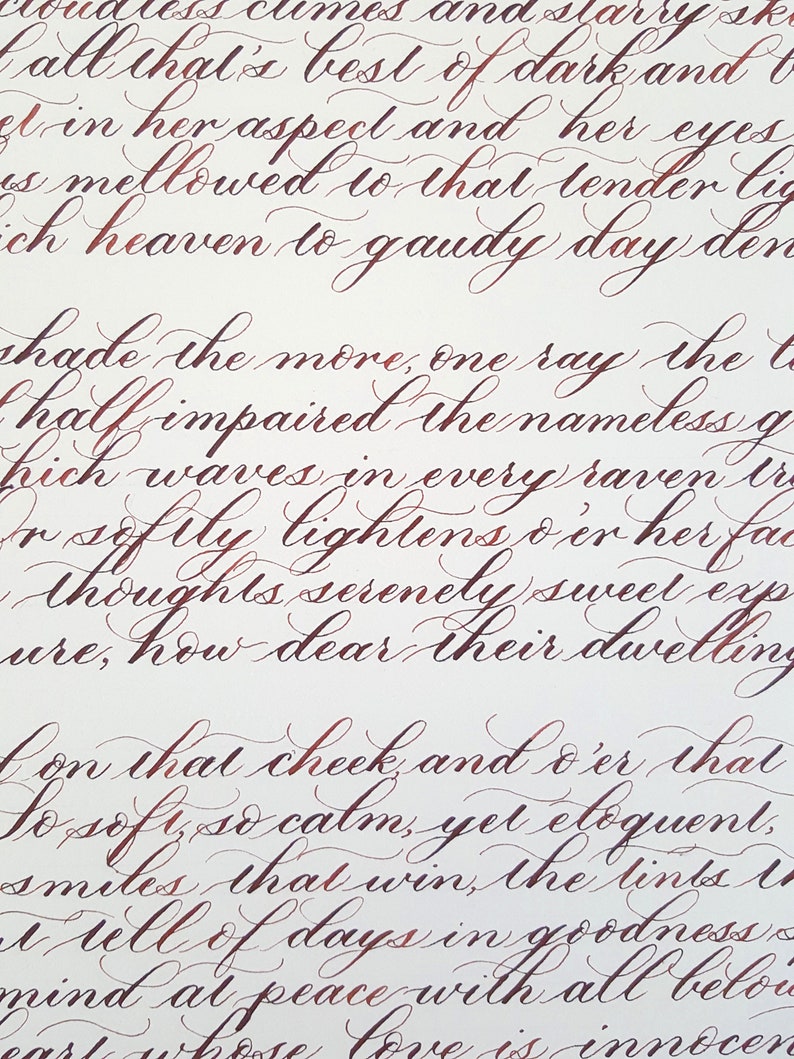 cloudless climes and starry sk
all that's best of dark and b
et in her aspect and her eyes
us mellowed to that tender lig
ich heaven to gaudy day den
shade the more, one ray the l
half impaired the nameless g
hich waves in every raven tr
r softly lightens o'er her fac
thoughts serenely sweet exp
ure, how dear their dwelling
d on that cheek, and o'er that
So soft, so calm, yet eloquent,
smiles that win, the tints th
t tell of days in goodness s
mind at peace with all below
heart whose love is innocen